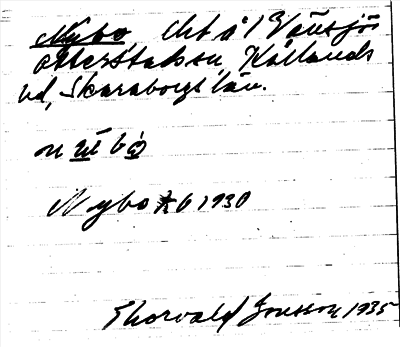 Nybo, åbt å 1 Vänsjö
Otterstads sn, Kållands
hd, Skaraborgs län.
nȳbo
Nybo Jb 1930
Thorvald Jonsson 1935